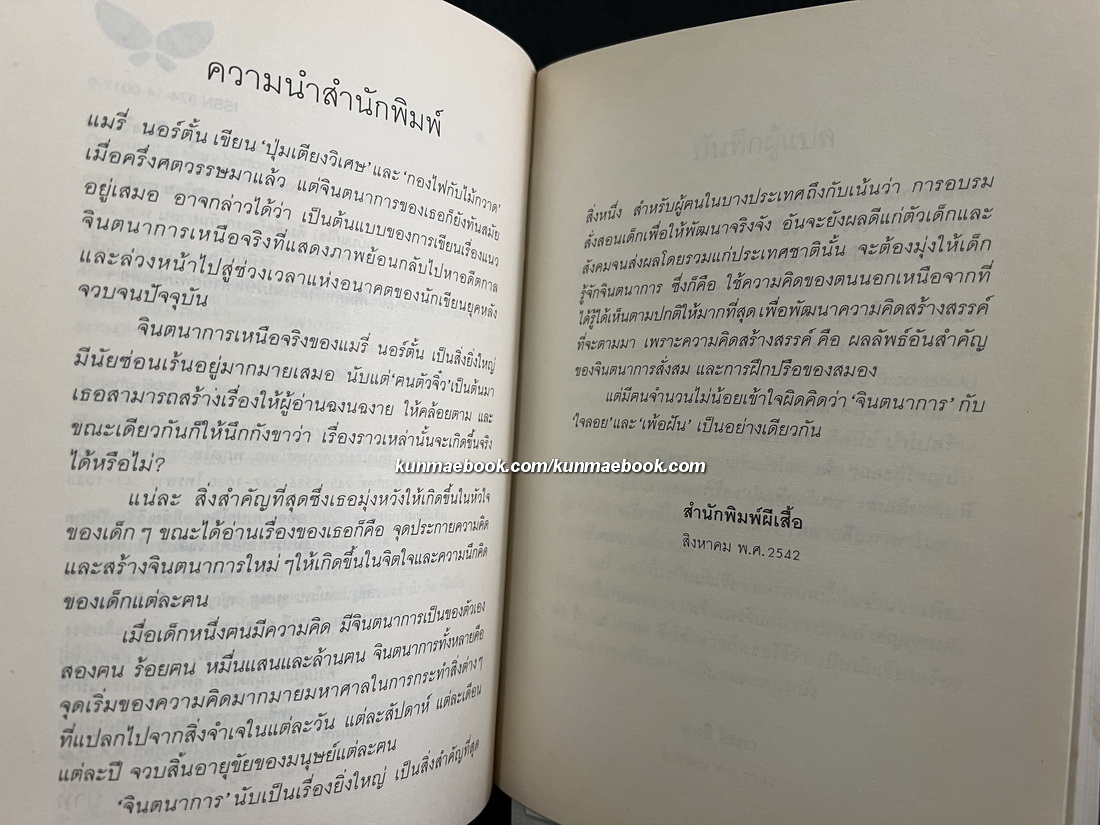 ความนำสำนักพิมพ์
แมรี่ นอร์ตั้น เขียน ‘ปุ่มเตียงวิเศษ’ และ ‘กองไฟกับไม้กวาด’
เมื่อครึ่งศตวรรษมาแล้ว แต่จินตนาการของเธอก็ยังทันสมัย
อยู่เสมอ อาจกล่าวได้ว่า เป็นต้นแบบของการเขียนเรื่องแนว
จินตนาการเหนือจริงที่แสดงภาพย้อนกลับไปหาอดีตกาล
และล่วงหน้าไปสู่ช่วงเวลาแห่งอนาคตของนักเขียนยุคหลัง
จวบจนปัจจุบัน
จินตนาการเหนือจริงของแมรี่ นอร์ตั้น เป็นสิ่งยิ่งใหญ่
มีนัยซ่อนเร้นอยู่มากมายเสมอ นับแต่ ‘คนตัวจิ๋ว’ เป็นต้นมา
เธอสามารถสร้างเรื่องให้ผู้อ่านฉงนฉงาย ให้คล้อยตาม และ
ขณะเดียวกันก็ให้นึกกังขาว่า เรื่องราวเหล่านั้นจะเกิดขึ้นจริง
ได้หรือไม่?
แน่ละ สิ่งสำคัญที่สุดซึ่งเธอมุ่งหวังให้เกิดขึ้นในหัวใจ
ของเด็กๆ ขณะได้อ่านเรื่องของเธอก็คือ จุดประกายความคิด
และสร้างจินตนาการใหม่ๆ ให้เกิดขึ้นในจิตใจและความนึกคิด
ของเด็กแต่ละคน
เมื่อเด็กหนึ่งคนมีความคิด มีจินตนาการเป็นของตัวเอง
สองคน ร้อยคน หมื่นแสนและล้านคน จินตนาการทั้งหลายคือ
จุดเริ่มของความคิดมากมายมหาศาลในการกระทำสิ่งต่างๆ
ที่แปลกไปจากสิ่งจำเจในแต่ละวัน แต่ละสัปดาห์ แต่ละเดือน
แต่ละปี จวบสิ้นอายุขัยของมนุษย์แต่ละคน
‘จินตนาการ’ นับเป็นเรื่องยิ่งใหญ่ เป็นสิ่งสำคัญที่สุด
สิ่งหนึ่ง สำหรับผู้คนในบางประเทศถึงกับเน้นว่า การอบรม
สั่งสอนเด็กเพื่อให้พัฒนาจริงจัง อันจะยังผลดีแก่ตัวเด็กและ
สังคมจนส่งผลโดยรวมแก่ประเทศชาตินั้น จะต้องมุ่งให้เด็ก
รู้จักจินตนาการ ซึ่งก็คือ ใช้ความคิดของตนนอกเหนือจากที่
ได้รู้ได้เห็นตามปกติให้มากที่สุด เพื่อพัฒนาความคิดสร้างสรรค์
ที่จะตามมา เพราะความคิดสร้างสรรค์ คือ ผลลัพธ์อันสำคัญ
ของจินตนาการสั่งสม และการฝึกปรือของสมอง
แต่มีคนจำนวนไม่น้อยเข้าใจผิดคิดว่า ‘จินตนาการ’ กับ
‘ใจลอย’ และ ‘เพ้อฝัน’ เป็นอย่างเดียวกัน
kunmaebook.com/kunmaebook.com
สำนักพิมพ์ผีเสื้อ
สิงหาคม พ.ศ. 2542